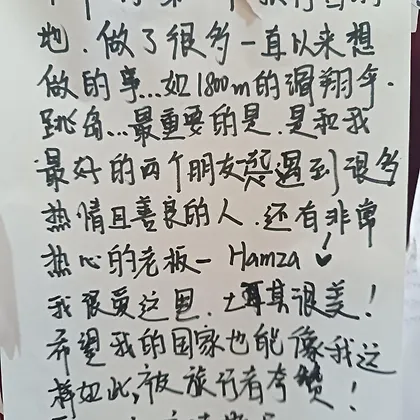 地.做了很多一直以来想
做的事...如1800m的滑翔伞.
跳岛...最重要的是.是和我
最好的两个朋友一起遇到很多
热情且善良的人.还有非常
热心的老板— Hamza ♥!
我很爱这里.土耳其很美!
希望我的国家也能像我这
般如此,被旅行者夸赞!